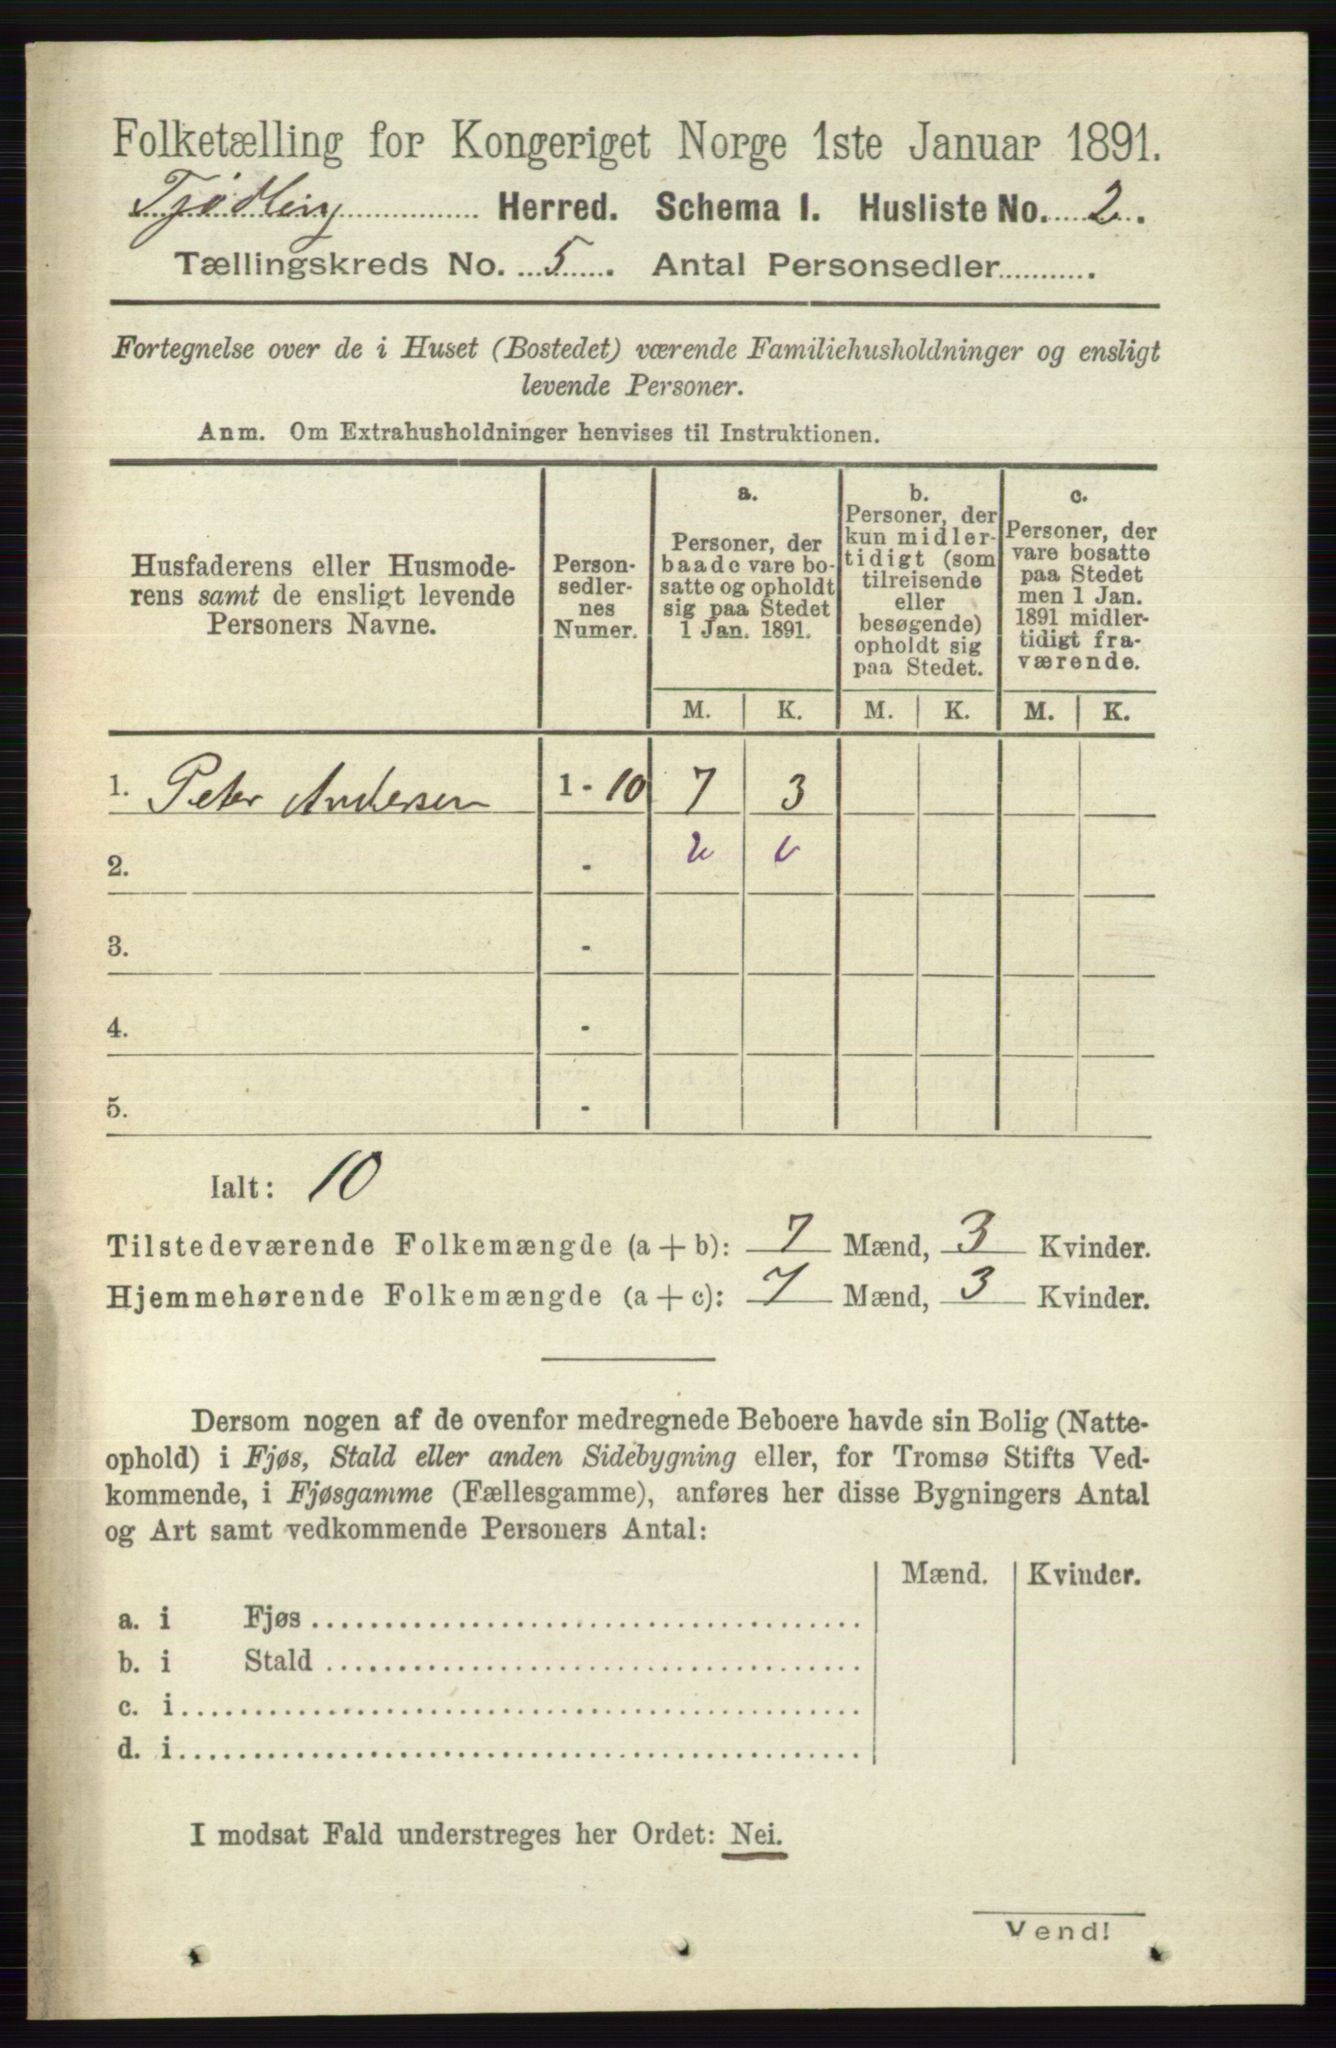 Folketælling for Kongeriget Norge 1ste Januar 1891.
Tjødling Herred. Schema I. Husliste No. 2.
Tællingskreds No. 5. Antal Personsedler
Fortegnelse over de i Huset (Bostedet) værende Familiehusholdninger og ensligt
levende Personer.
Anm. Om Extrahusholdninger henvises til Instruktionen.
Husfaderens eller Husmode-
rens samt de ensligt levende
Personers Navne.
Person-
sedler-
nes
Numer.
a.
Personer, der
baade vare bo-
satte og opholdt
sig paa Stedet
1 Jan. 1891.
b.
Personer, der
kun midler-
tidigt (som
tilreisende
eller
besøgende)
opholdt sig
paa Stedet.
c.
Personer, der
vare bosatte
paa Stedet
men 1 Jan.
1891 midler-
tidigt fra-
værende.
M. K. M. K. M. K.
1. Peter Andersen 1 - 10 7 3
2. -
3. -
4. -
5. -
Ialt: 10
Tilstedeværende Folkemængde (a + b): 7 Mænd, 3 Kvinder.
Hjemmehørende Folkemængde (a + c): 7 Mænd, 3 Kvinder.
Dersom nogen af de ovenfor medregnede Beboere havde sin Bolig (Natte-
ophold) i Fjøs, Stald eller anden Sidebygning eller, for Tromsø Stifts Ved-
kommende, i Fjøsgamme (Fællesgamme), anføres her disse Bygningers Antal
og Art samt vedkommende Personers Antal:
Mænd. Kvinder.
a. i Fjøs
b. i Stald
c. i
d. i
I modsat Fald understreges her Ordet: Nei.
Vend!